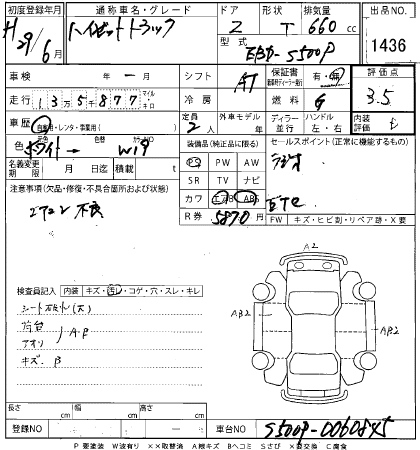 初度登録年月 通称車名・グレード ドア 形状 排気量 出品NO.
H29/6月 ハイゼットトラック 2 T 660 cc 1436
型式 EBD-S500P
車検 年 ー 月 シフト AT 保証書 有・無 評価点
走行 13万5千877 マイル キロ 冷房 燃料 G 3.5
車歴 自家用・レンタ・事業用( ) 定員 2人 外車モデル 年 ディーラー 並行 ハンドル 左・右 内装評価 E
色 ホワイト → 色替 カラーNO W19 装備品(純正品に限る) セールスポイント(正常に機能するもの)
名義変更期限 月 日迄 積載 t PS PW AW ラジオ
注意事項(欠品・修復・不具合箇所および状態) SR TV ナビ
エアコン不良 カワ エアB ABS ETC
R券 5870円 FW キズ・ヒビ割・リペア跡・X要
検査員記入 内装 キズ・汚レ・コゲ・穴・スレ・キレ
A2
シート破れ(大)
荷台
アオリ A・P
AB2 AB2
キズ・B
A2
長さ cm 幅 cm 高さ cm
登録NO 車台NO S500P-0060845
P要塗装 W波有り ××取替済 A線キズ Bヘコミ Sさび X要交換 C腐食